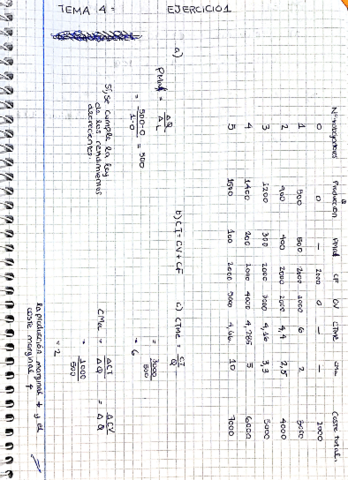 TEMA 4: EJERCICIO 1
Nº trabajadores Producción PMaL CF CV CTMe CMa Coste total
0 0 — 2000 0 — — 2000
1 500 500 2000 1000 6 2 3000
2 900 400 2000 2000 4,4 2,5 4000
3 1200 300 2000 3000 4,16 3,3 5000
4 1400 200 2000 4000 4,285 5 6000
5 1500 100 2000 5000 4,66 10 7000
a)
PMaL = ΔQ / ΔL
= 500-0 / 1-0 = 500
Sí, se cumple la ley
de los rendimientos
decrecientes
b) CT = CV + CF
c) CTMe = CT / Q
= 3000 / 500
= 6
CMa = ΔCT / ΔQ = ΔCV / ΔQ
= 1000 / 500
= 2
la producción marginal ↓ y el
coste marginal ↑